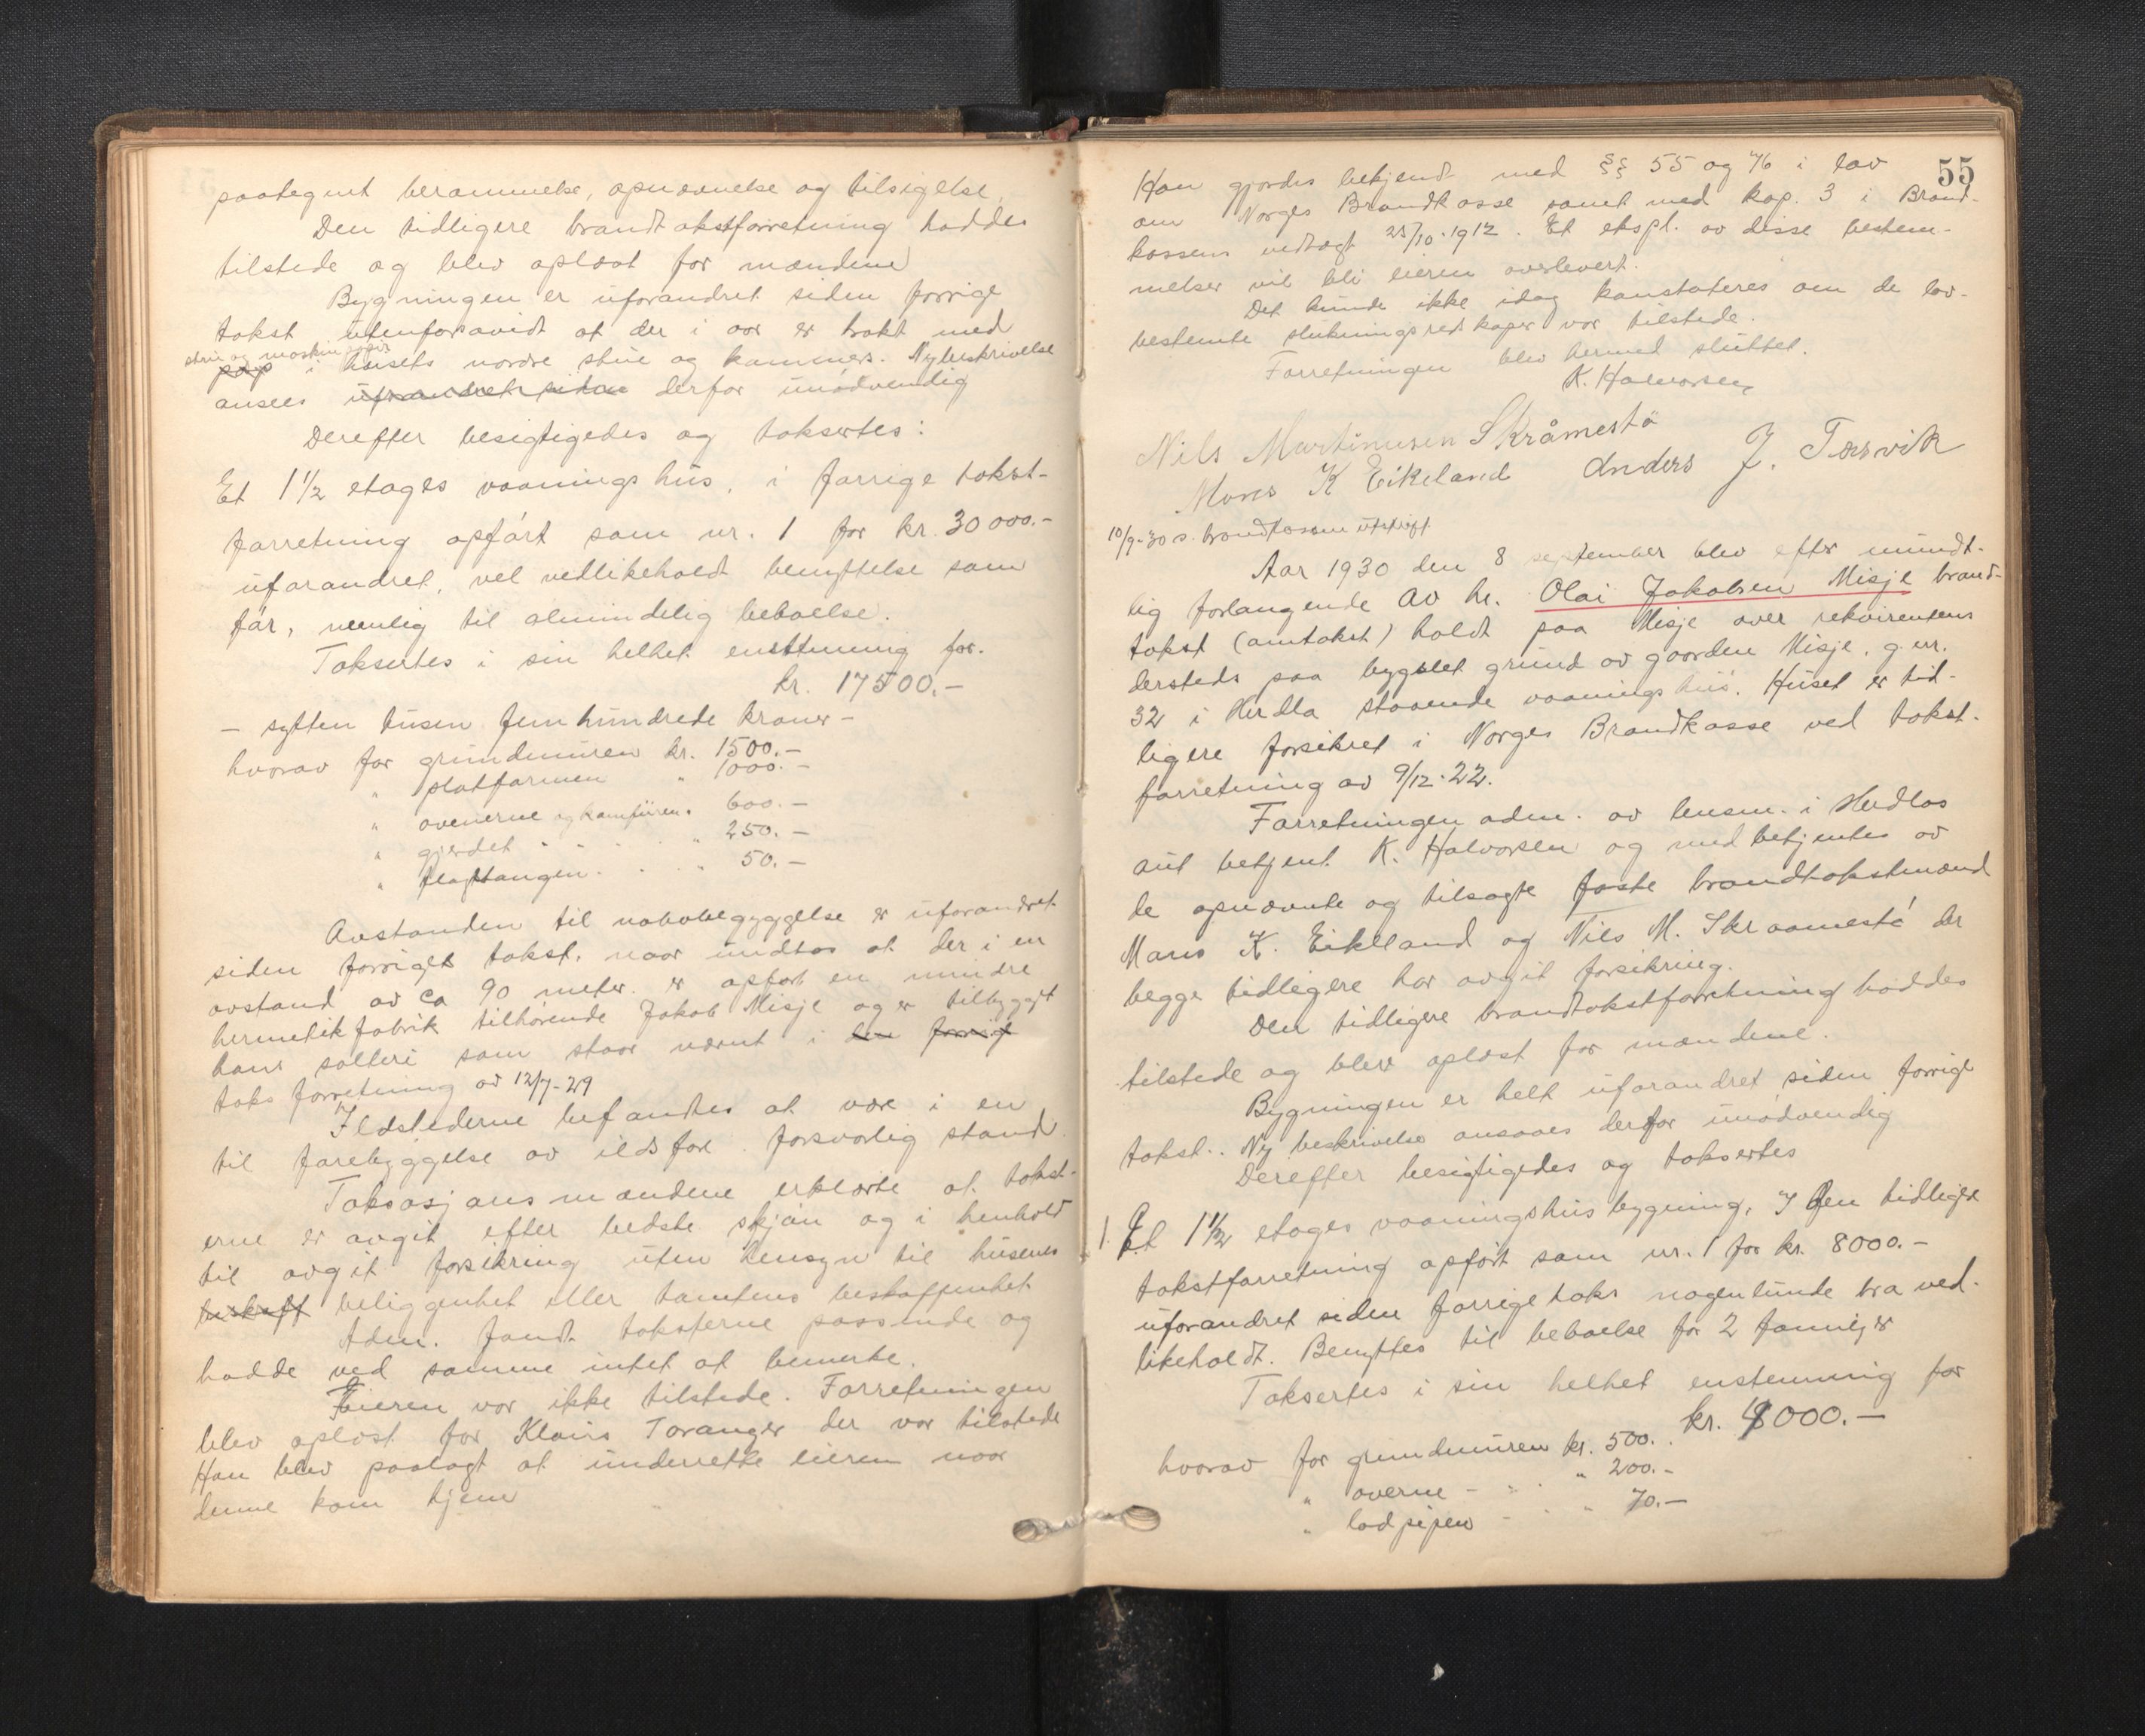 paategnt berammelse, opnævnelse og tilsigelse.
Den tidligere brandtakstforretning haddes
tilstede og blev oplæst for mændene
Bygningen er uforandret siden forrige
takst utenforsavidt at der i aar er trakt med
strie og maskinpapir
pap i husets nordre stue og kammers. Ny beskrivelse
ansees uforandret siden derfor unødvendig
Derefter besigtigedes og taksertes:
Et 1½ etages vaaningshus, i forrige takst-
forretning opført som nr. 1 for kr. 30000.-
uforandret, vel vedlikeholdt benyttelse som
før, nemlig til almindelig beboelse.
Taksertes i sin helhet enstemmig for.
kr. 17500.-
- sytten tusen femhundrede kroner -
hvorav for grundmuren kr. 1500.-
" platformen " 1000.-
" ovenerne og komfüren " 600.-
" gjerdet " 250.-
" flagstangen " 50.-
Avstanden til nabobebyggelse er uforandret
siden forriget takst, naar undtas at der i en
avstand av ca 90 meter er opført en mindre
hermetikfabrik tilhørende Jakob Misje og er tilbygget
hans salteri som staar nævnt i den forrige
taksforretning av 12/7-29
Ildstederne befandtes at være i en
til forebyggelse av ildsfare forsvarlig stand.
Taksasjonsmændene erklærte at takst-
erne er avgit efter bedste skjøn og i henhold
til avgit forsikring uten hensyn til husenes
beskaff beliggenhet eller tomtens beskaffenhet
Adm. fandt taksterne passende og
hadde ved samme intet at bemerke.
Eieren var ikke tilstede. Forretningen
blev oplæst for Klaus Toranger der var tilstede
Han blev paalagt at underrette eieren naar
denne kom hjem
55
Han gjordes bekjendt med §§ 55 og 76 i lov
om Norges Brandkasse samt med kap. 3 i Brand-
kassens vedtægt 25/10-1912. Et ekspl. av disse bestem-
melser vil bli eieren overlevert.
Det kunde ikke idag konstateres om de lov-
bestemte slukningsredskaper var tilstede.
Forretningen blev hermed sluttet.
K. Halvorsen
Nils Martinusen Skråmestö
Mons K Eikeland Anders J. Tærvik
10/9-30 s. brandkassen utskrift
Aar 1930 den 8 september blev efter mundt-
lig forlangende av hr. Olai Jakobsen Misje brand-
takst (omtakst) holdt paa Misje over rekvirentens
dersteds paa bygslet grund av gaarden Misje, g.nr.
32 i Herdla staaende vaaningshus. Huset er tid-
ligere forsikret i Norges Brandkasse ved takst-
forretning av 9/12-22.
Forretningen adm. av lensm. i Herdlas
aut betjent K. Halvorsen og med betjentes av
de opnævnte og tilsagte faste brandtakstmænd
Mons K. Eikeland og Nils M. Skraamestø der
begge tidligere har avgit forsikring.
Den tidligere brandtakstforretning haddes
tilstede og blev oplæst for mændene.
Bygningen er helt uforandret siden forrige
takst. Ny beskrivelse ansaaes derfor unødvendig
Derefter besigtigedes og taksertes
1. Et 1½ etages vaaningshusbygning, I den tidligere
takstforretning opført som nr. 1 for kr. 8000.-
uforandret siden forrige taks nogenlunde bra ved-
likeholdt. Benyttes til beboelse for 2 familjer
Taksertes i sin helhet enstemmig for
kr. 8000.-
hvorav for grundmuren kr. 500.-
" overne - " 200.-
" lodpipen - " 70.-